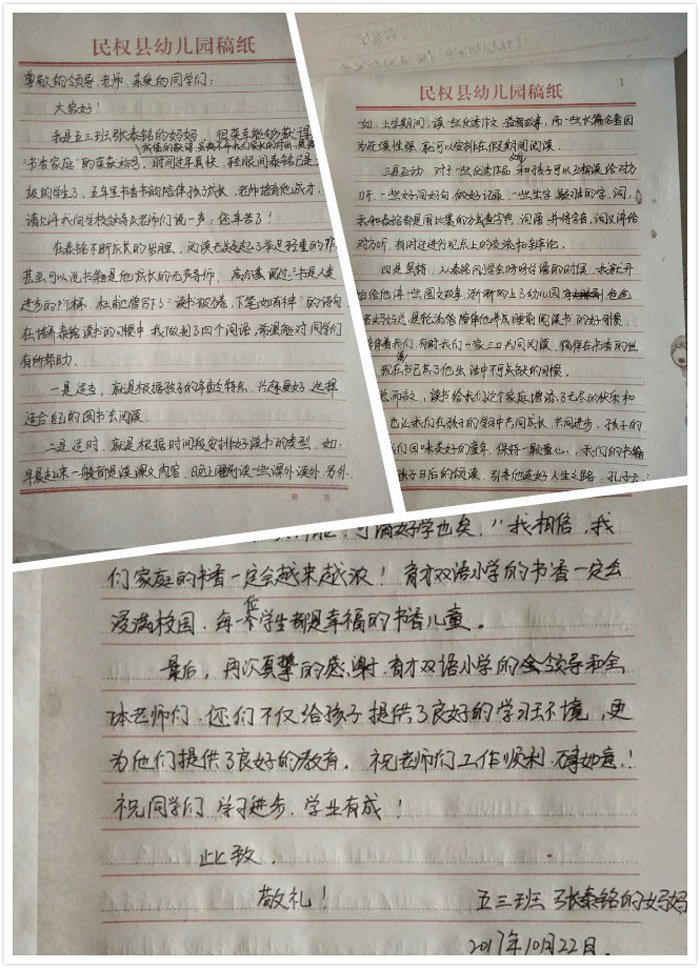 民权县幼儿园稿纸
尊敬的领导、老师、亲爱的同学们：
大家好！
我是五三班张泰铭的妈妈，很荣幸能够获得
"书香家庭"的荣誉称号，时间过年真快，转眼间泰铭已是
级的学生了，五年里书香韵陪伴孩子成长，老师培育他成才，
请允许我向学校领导及老师们说一声：您辛苦了！
在泰铭不断成长的岁月里，阅读无疑起了举足轻重的作
甚至可以说书籍是他成长的无声导师，高尔基说过：书是人类
进步的阶梯，杜甫也曾写下了"读书破万卷，下笔如有神"的诗句
在培养泰铭读书的习惯中，我做到了四个词语，希望能对同学们
有所帮助。
一是适当，就是根据孩子的年龄特点、兴趣爱好，选择
适合自己的图书去阅读。
二是适时，就是根据时间段安排好读书的类型，如：
早晨起来一般都是读课文内容，晚上睡前读一些课外读外，另外
第 页
民权县幼儿园稿纸
如：上学期间，读一些优秀作文、益智故事，而一些长篇名著因
为连续性强，就可以安排在假期期间阅读。
三是互动，对于一些优秀作品，我和孩子可以互相读给对方
听，一些好词好句，做好记录，一些生字、疑难的字、词，
我和泰铭都是用比赛的方式查字典、词语，并将字音、词义讲给
对方听，有时还进行观点上的交流和辩论。
四是坚持，从泰铭同学会咿呀学语的时候，我就开
始给他讲一些图文故事，渐渐的上了幼儿园，爸爸
妈妈总是轮流着陪伴他养成睡前阅读书的好习惯
伴着我们，有时我们一家三口共同阅读，徜徉在书香的世
现在书已成了他生活中不可或缺的习惯。
总而言之，读书给我们这个家庭增添了无尽的快乐和
也让我们在孩子的学习中共同成长、共同进步，孩子的
们回味美好的童年，保持一颗童心，我们的书籍
孩子日后的阅读，引导他走好人生之路，孔子云：
可谓好学也矣，"我相信，我
们家庭的书香一定会越来越浓！育才双语小学的书香一定会
浸满校园，每一位学生都是幸福的书香儿童。
最后，再次真挚的感谢，育才双语小学的全领导和全
体老师们，您们不仅给孩子提供了良好的学习环境，更
为他们提供了良好的教育。祝老师们工作顺利，万事如意！
祝同学们 学习进步，学业有成！
此致，
敬礼！
五三班 张泰铭的妈妈
2017年10月22日.